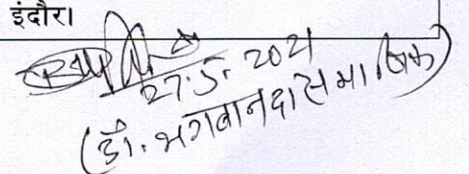 इंदौर।
27.5.2021
(डॉ. भगवानदास माणिक)